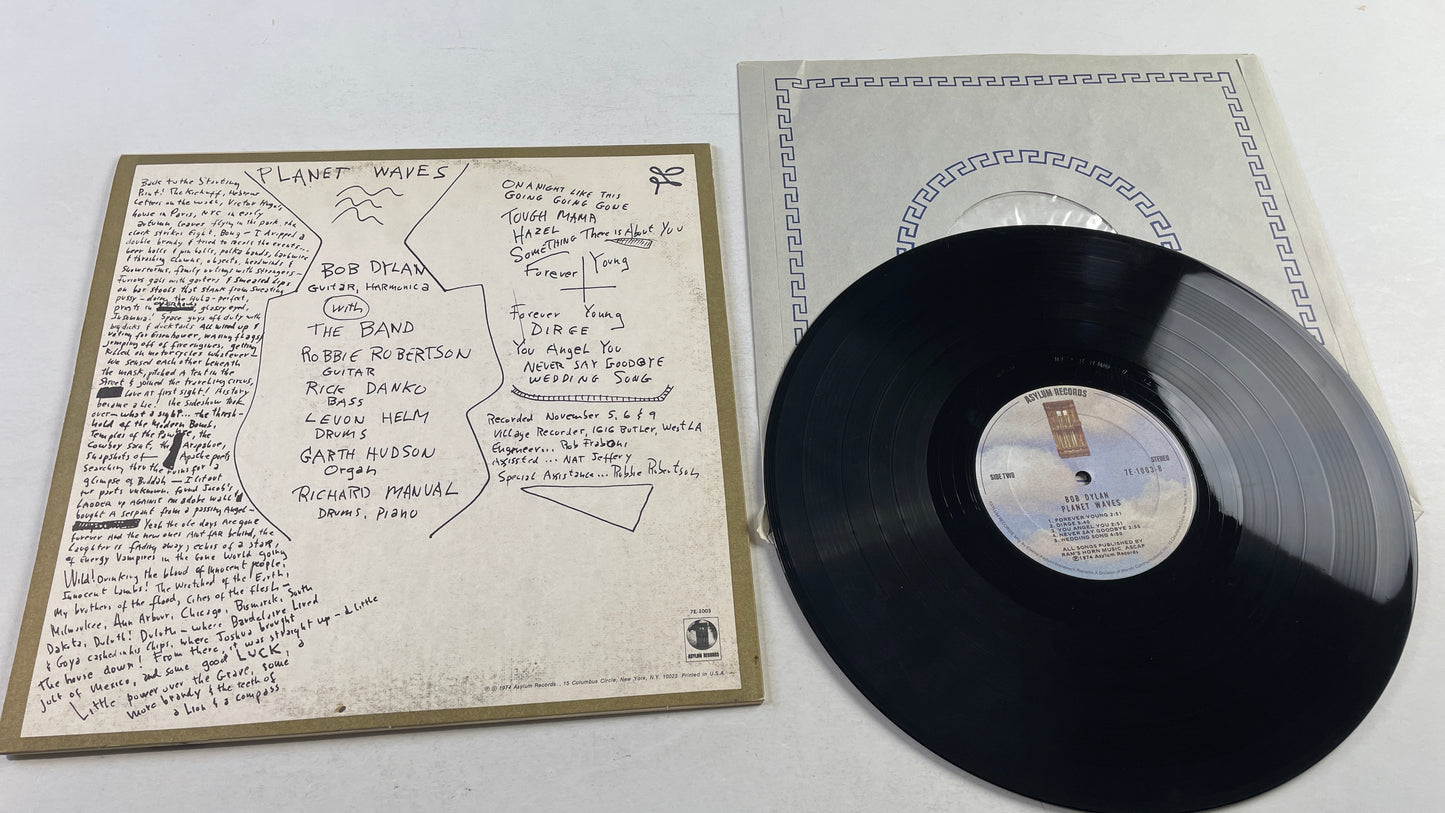 Back to the Starting
Point! The Kickoff, Hebrew
Letters on the wall, Victor Hugo's
house in Paris, NYC in early
autumn, leaves flying in the park, the
clock strikes Eight, Bong — I dropped a
double brandy & tried to recall the events...
beer halls & pin balls, polka bands, barbwire
& thrashing clowns, objects, headwinds &
Snowstorms, family outings with strangers—
Furious gals with garters & smeared Lips
on bar stools that stank from sweating
pussy — doing the Hula — perfect,
priests in overhauls, glassy eyed,
Insomnia! Space guys off duty with
big dicks & ducktails All wired up &
voting for Eisenhower, waving flags &
jumping off of fire engines, getting
killed on motorcycles whatever —
We sensed each other beneath
the mask, pitched a tent in the
Street & joined the traveling circus,
Love at first sight! History
became a Lie! the sideshow took
over — what a sight... the thresh-
hold of the Modern Bomb,
Temples of the Pawnee, the
Cowboy Saint, the Arapahoe,
snapshots of Apache poets
searching thru the ruins for a
glimpse of Buddah — I lit out
for parts unknown, found Jacob's
LADDER up against an adobe wall &
bought A serpent from a passing Angel—
Yeah the ole days Are gone
forever And the new ones Aint fAR behind, the
Laughter is fAding away, echos of a staR,
of Energy Vampires in the Gone World going
Wild! Drinking the blood of innocent people,
Innocent Lambs! The Wretched of the Earth,
My brothers of the flood, Cities of the flesh —
Milwaukee, Ann Arbor, Chicago, Bismarck, South
Dakota, Duluth! Duluth — where Baudelaire Lived
& Goya cashed in his Chips, where Joshua brought
the house down! From there, it was straight up — a Little
jolt of Mexico, and some good LUCK, a
Little power over the Grave, some
more brandy & the teeth of
a Lion & a compass
PLANET WAVES
BOB DYLAN
GUITAR, HARMONICA
with
THE BAND
ROBBIE ROBERTSON
GUITAR
RICK DANKO
BASS
LEVON HELM
DRUMS
GARTH HUDSON
Organ
RICHARD MANUAL
DRUMS, PIANO
ON A NIGHT LIKE THIS
GOING GOING GONE
TOUGH MAMA
HAZEL
SOMETHING There is About You
Forever Young
Forever Young
DIRGE
You Angel You
NEVER SAY GOODBYE
WEDDING SONG
Recorded November 5, 6 & 9
Village Recorder, 1616 BUTLER, West LA
Engeneer... Rob Fraboni
Assisted... NAT Jeffery
Special Assistance... Robbie Robertson
7E-1003
ASYLUM RECORDS
℗ © 1974 Asylum Records., 15 Columbus Circle, New York, N.Y. 10023 Printed in U.S.A.
ASYLUM RECORDS
SIDE TWO
STEREO
7E-1003-B
BOB DYLAN
PLANET WAVES
1. FOREVER YOUNG 2:51
2. DIRGE 5:40
3. YOU ANGEL YOU 2:51
4. NEVER SAY GOODBYE 2:55
5. WEDDING SONG 4:50
ALL SONGS PUBLISHED BY
RAM'S HORN MUSIC ASCAP
℗ 1974 Asylum Records